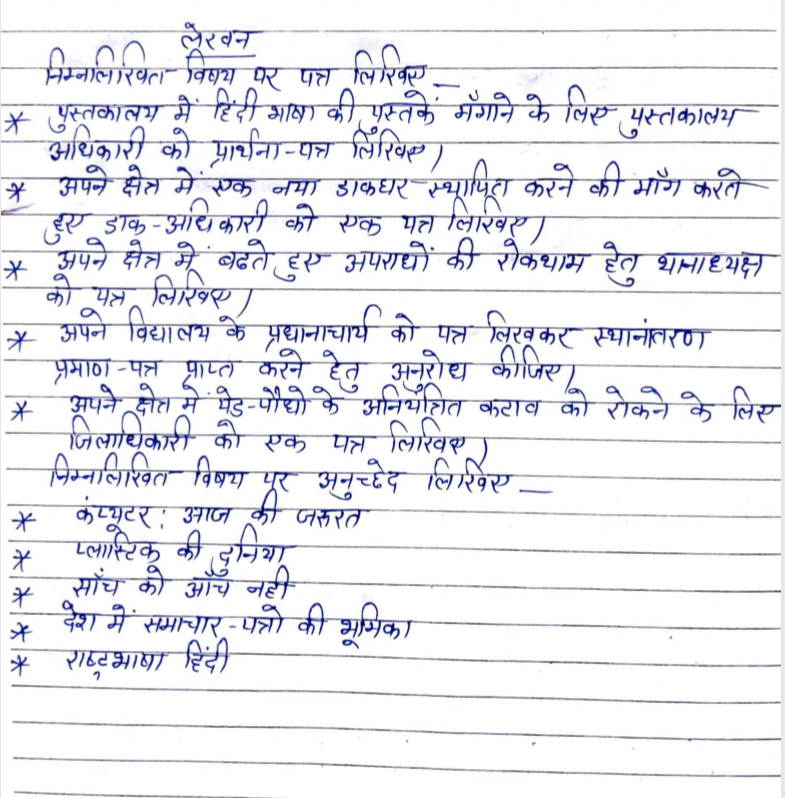 लेखन
निम्नलिखित विषय पर पत्र लिखिए –
* पुस्तकालय में हिंदी भाषा की पुस्तकें मँगाने के लिए पुस्तकालय
अधिकारी को प्रार्थना-पत्र लिखिए।
* अपने क्षेत्र में एक नया डाकघर स्थापित करने की माँग करते
हुए डाक-अधिकारी को एक पत्र लिखिए।
* अपने क्षेत्र में बढते हुए अपराधों की रोकथाम हेतु थानाध्यक्ष
को पत्र लिखिए।
* अपने विद्यालय के प्रधानाचार्य को पत्र लिखकर स्थानांतरण
प्रमाण-पत्र प्राप्त करने हेतु अनुरोध कीजिए।
* अपने क्षेत्र में पेड-पौधो के अनियंत्रित कटाव को रोकने के लिए
जिलाधिकारी को एक पत्र लिखिए।
निम्नलिखित विषय पर अनुच्छेद लिखिए –
* कंप्यूटर: आज की जरुरत
* प्लास्टिक की दुनिया
* साँच को आँच नही
* देश में समाचार-पत्रो की भूमिका
* राष्ट्रभाषा हिंदी